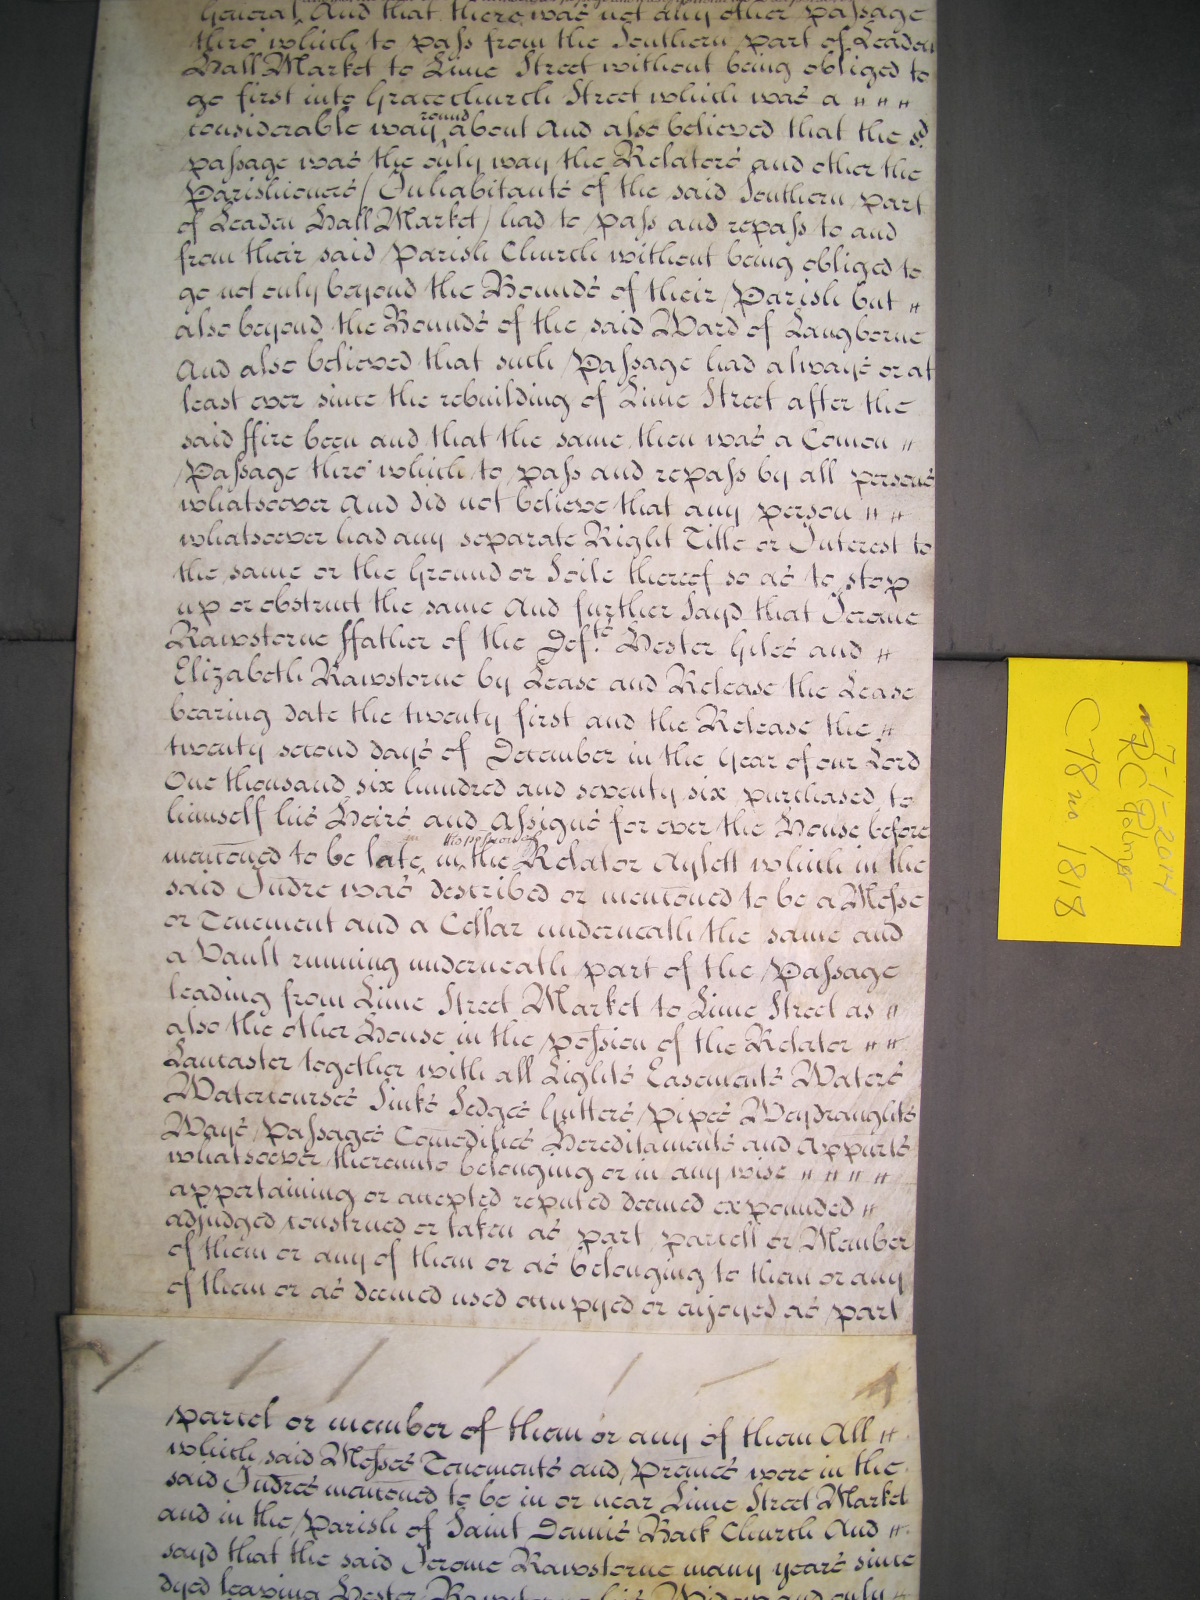 General And that there was not any other passage
thro' which to pass from the Southern part of Leaden
Hall Market to Lime Street without being obliged to
go first into Gracechurch Street which was a " " "
considerable way round about And also believed that the sd.
passage was the only way the Relators and other the
Parishioners (Inhabitants of the said Southern part
of Leaden Hall Market) had to pass and repass to and
from their said Parish Church without being obliged to
go not only beyond the Bounds of their Parish but "
also beyond the Bounds of the said Ward of Langborne
And also believed that such Passage had always or at
least ever since the rebuilding of Lime Street after the
said ffire been and that the same then was a Comon "
Passage thro' which to pass and repass by all persons
whatsoever And did not believe that any person " "
whatsoever had any separate Right Title or Interest to
the same or the Ground or Soile thereof so as to stop
up or obstruct the same And further Sayd that Jerome
Rawstorne ffather of the Defts. Hester Giles and "
Elizabeth Rawstorne by Lease and Release the Lease
bearing date the twenty first and the Release the "
twenty second days of December in the Year of our Lord
One thousand six hundred and seventy six purchased to
himself his Heirs and Assignes for ever the House before
menconed to be late in the possession of the Relator Aylett which in the
said Indre was described or menconed to be a Messe
or Tenement and a Cellar underneath the same and
a Vault running underneath part of the Passage
leading from Lime Street Market to Lime Street as "
also the other House in the possion of the Relator " "
Lancaster together with all Lights Easements Waters
Watercourses Sinks Sedges Gutters Pipes Weydraughts
Ways Passages Comodities Hereditaments and Appurts
whatsoever thereunto belonging or in any wise " " " "
appertaining or accepted reputed deemed expounded "
adjudged construed or taken as part parcell or Member
of them or any of them or as belonging to them or any
of them or as deemed used occupyed or enjoyed as part
parcel or member of them or any of them All "
which said Messes Tenements and Premes were in the
said Indres menconed to be in or near Lime Street Market
and in the Parish of Saint Dennis Back Church And "
sayd that the said Jerome Rawstorne many years since
dyed leaving Hester Rawstorne his Widow and only "
7-1-2014
RC Palmer
C78 no. 1818